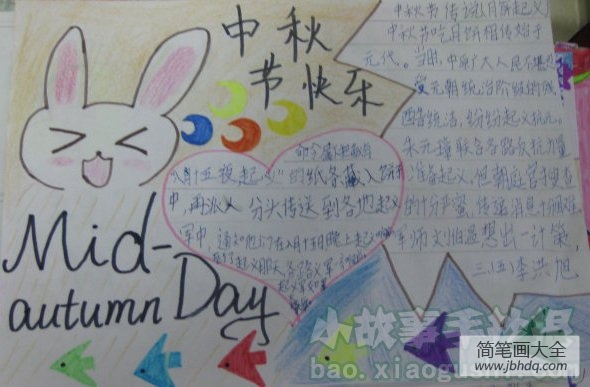 中秋
节快乐
中秋节传说:月饼起义
中秋节吃月饼相传始于
元代。当时,中原广大人民不堪忍
受元朝统治阶级的残
酷统治,纷纷起义抗元。
朱元璋联合各路反抗力量
准备起义。但朝庭官兵搜查
的十分严蜜,传递消息十分困难。
军师刘伯温想出一计策,
命令属下把藏有
"八月十五夜起义"的纸条藏入
中,再派人 分头传送到各地起义
军中,通知他们在八月十五日晚上起义
到了起义那天,各路义军
三(五)李洪旭
Mid-
autumn Day
小故事
bao.xiaogushi.com
简笔画大全
www.jbhdq.com